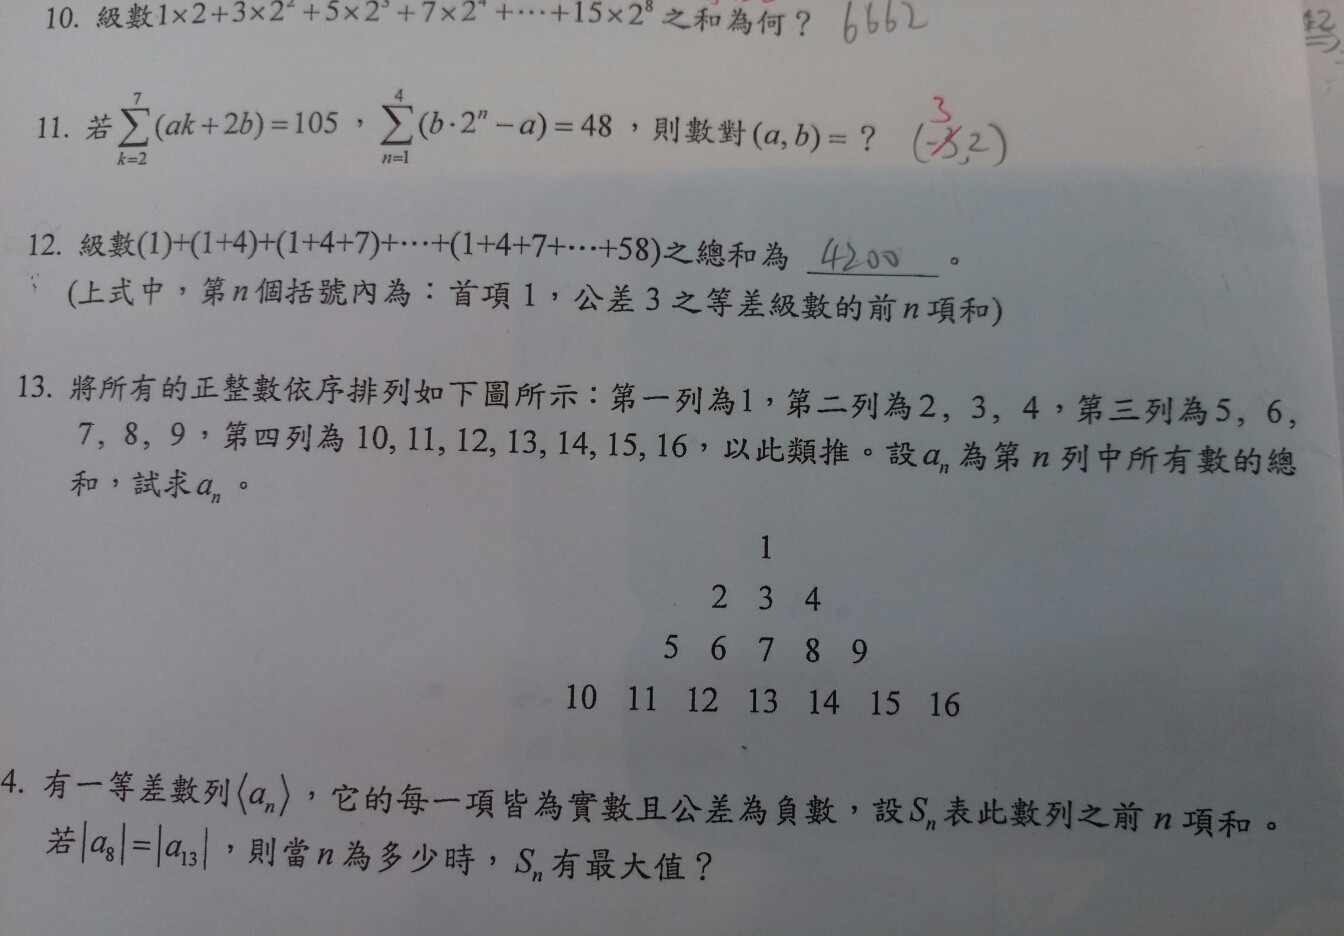 10. 級數1×2+3×2²+5×2³+7×2⁴+⋯+15×2⁸ 之和為何? 6662
11. 若 ∑_{k=2}^{7}(ak+2b)=105,∑_{n=1}^{4}(b·2ⁿ−a)=48,則數對(a,b)=? (-3,2) 3
12. 級數(1)+(1+4)+(1+4+7)+⋯+(1+4+7+⋯+58)之總和為 4200 。
(上式中,第n個括號內為:首項1,公差3之等差級數的前n項和)
13. 將所有的正整數依序排列如下圖所示:第一列為1,第二列為2, 3, 4,第三列為5, 6,
7, 8, 9,第四列為 10, 11, 12, 13, 14, 15, 16,以此類推。設aₙ為第n列中所有數的總
和,試求aₙ。
1
2 3 4
5 6 7 8 9
10 11 12 13 14 15 16
4. 有一等差數列⟨aₙ⟩,它的每一項皆為實數且公差為負數,設Sₙ表此數列之前n項和。
若|a₈|=|a₁₃|,則當n為多少時,Sₙ有最大值?